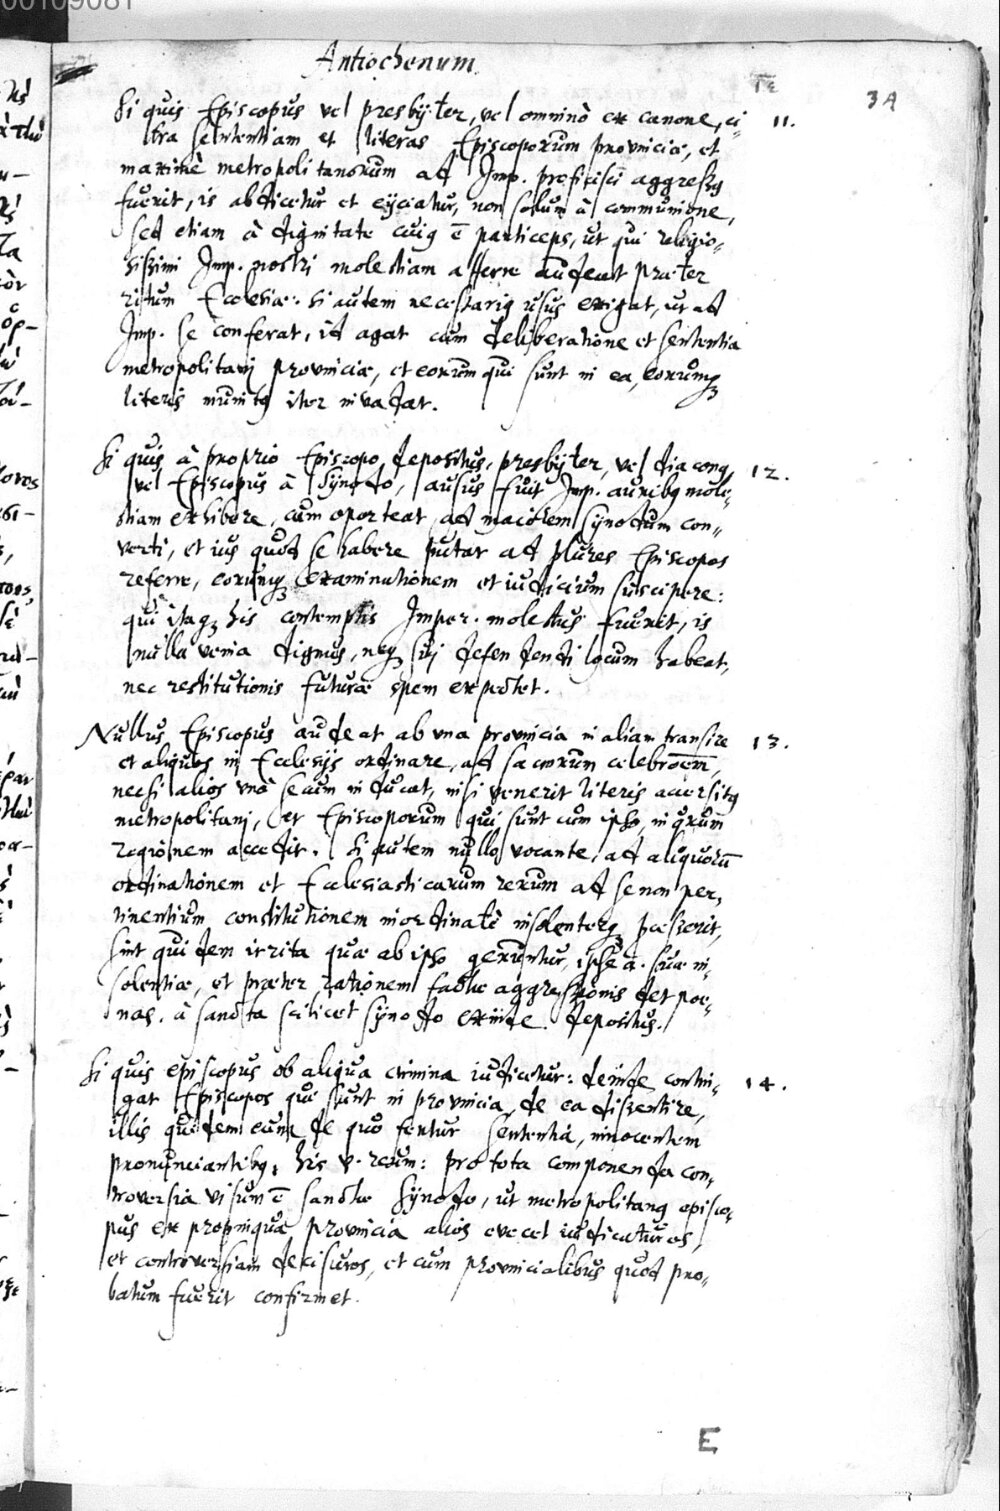 00109081
Antiochenum.
34
Si quis Episcopus vel presbyter, vel omninò ex canone, ci- 11.
tra sententiam et literas Episcoporum provinciæ, et
maximè metropolitanorum ad Imp. proficisci aggressus
fuerit, is abdicetur et eijciatur, non solum à communione,
sed etiam à dignitate cuiq ē particeps, ut qui religio-
sissimi Imp. nostri molestiam afferre audeat præter
ritum Ecclesiæ. si autem necessariq usus exigat, ut ad
Imp. se conferat, id agat cum deliberatione et sententia
metropolitani provinciæ, et eorum qui sunt in ea, eorumq
literis munitq iter invadat.
Si quis à proprio Episcopo depositus, presbyter, vel diaconq 12.
vel Episcopus à synodo, ausus fuit Imp. auribq mole-
stiam exhibere, cum oporteat ad maiorem synodum con-
verti, et ius quod se habere putat ad plures Episcopos
referre, eorumq examinationem et iudicium suscipere:
qui itaq his contemptis Imper. molestus fuerit, is
nulla venia dignus, neq sui defendendi locum habeat,
nec restitutionis futuræ spem expectet.
Nullus Episcopus audeat ab una provincia in aliam transire 13.
et aliquos in Ecclesijs ordinare, ad sacrorum celebrōem,
nec si alios unà secum inducat, nisi venerit literis accersitq
metropolitani, et Episcoporum qui sunt cum ipso, in qrum
regionem accedit. Si autem nullo vocante, ad aliquorū
ordinationem et Ecclesiasticarum rerum ad se non per-
tinentium constitutionem inordinatè insolenterq processerit,
sint quidem irrita quæ ab ipso geruntur, ipse a. suæ in-
solentiæ, et præter rationem factæ aggressionis det poe-
nas, à sancta scilicet synodo exinde depositus.
Si quis episcopus ob aliqua crimina iudicetur: deinde contin- 14.
gat Episcopos qui sunt in provincia de ea dissentire,
illis quidem eum de quo fertur sententia, innocentem
pronunciantibq, his v. reum: pro tota componenda con-
troversia visum ē sanctæ synodo, ut metropolitanq episco-
pus ex propinqua provincia alios evocet iudicaturos,
et controversiam decisuros, et cum provincialibus quod pro-
batum fuerit confirmet.
E